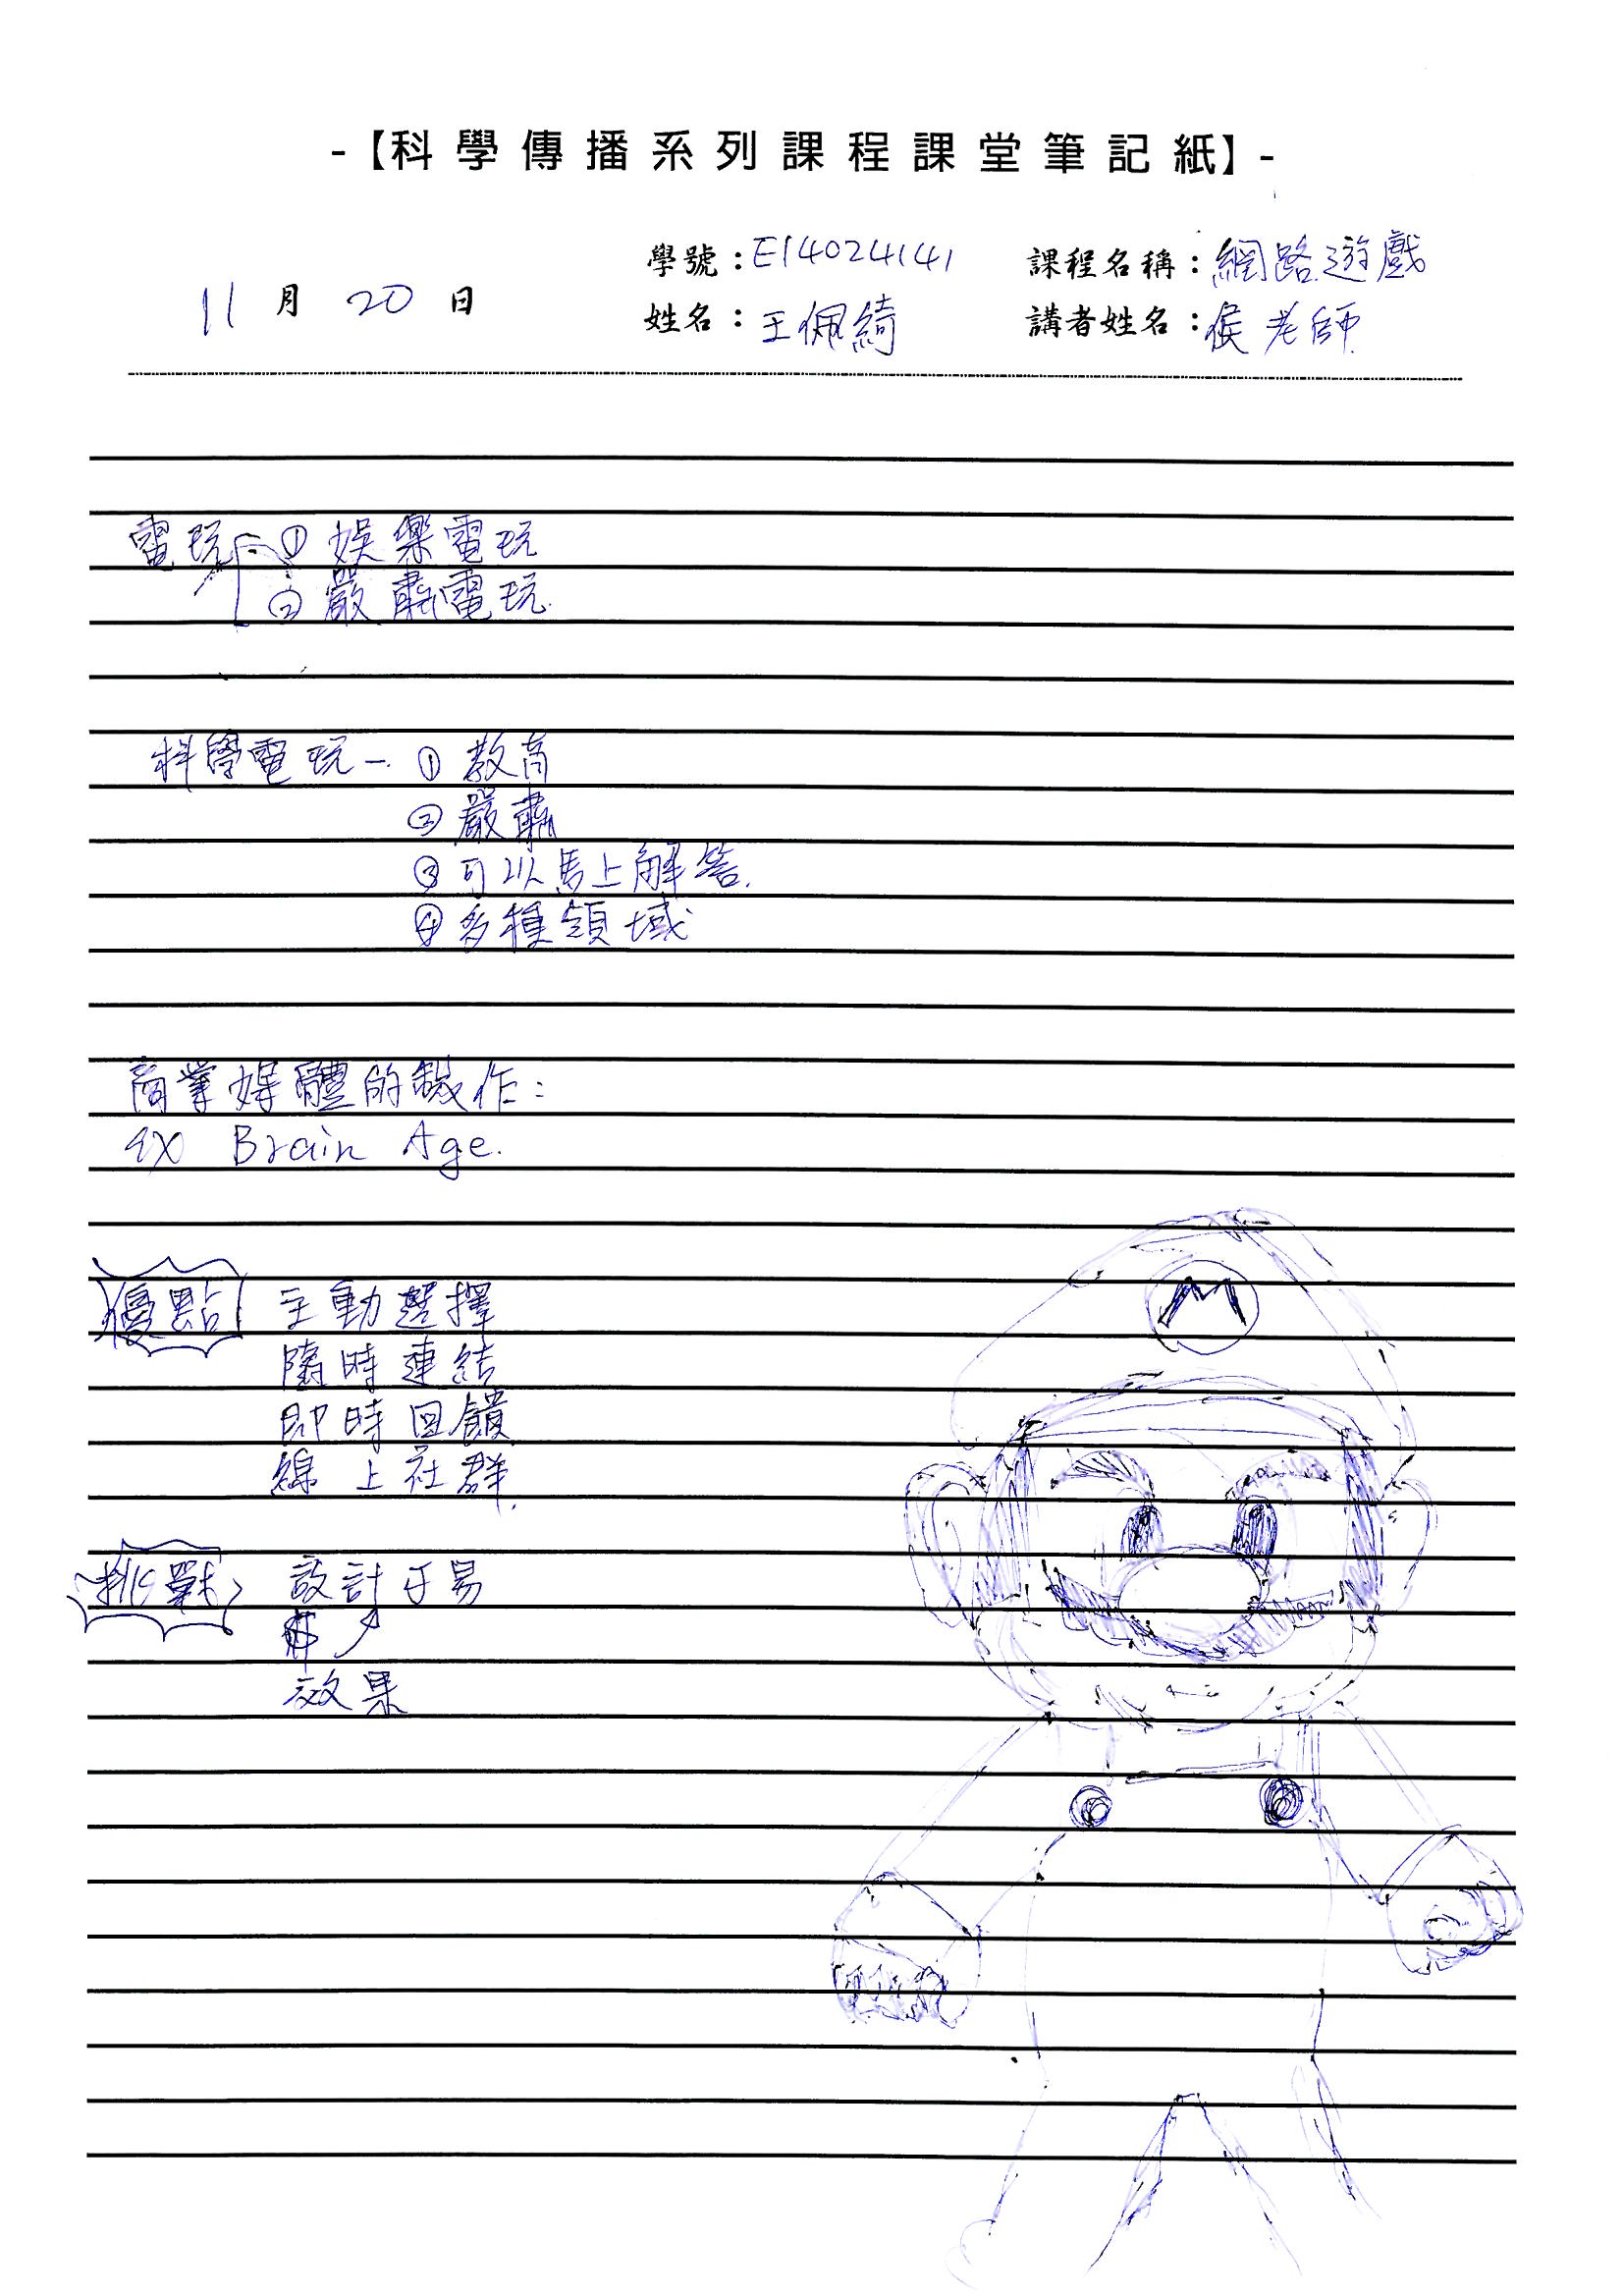 -【科學傳播系列課程課堂筆記紙】-
學號：E14024141 課程名稱：網路遊戲
11月20日 姓名：王佩綺 講者姓名：侯老師
電玩 ① 娛樂電玩
② 嚴肅電玩
科學電玩 - ① 教育
② 嚴肅
③ 可以馬上解答
④ 多種領域
商業媒體的製作：
ex Brain Age.
優點 主動選擇
隨時連結
即時回饋
線上社群
挑戰 設計
效果
M